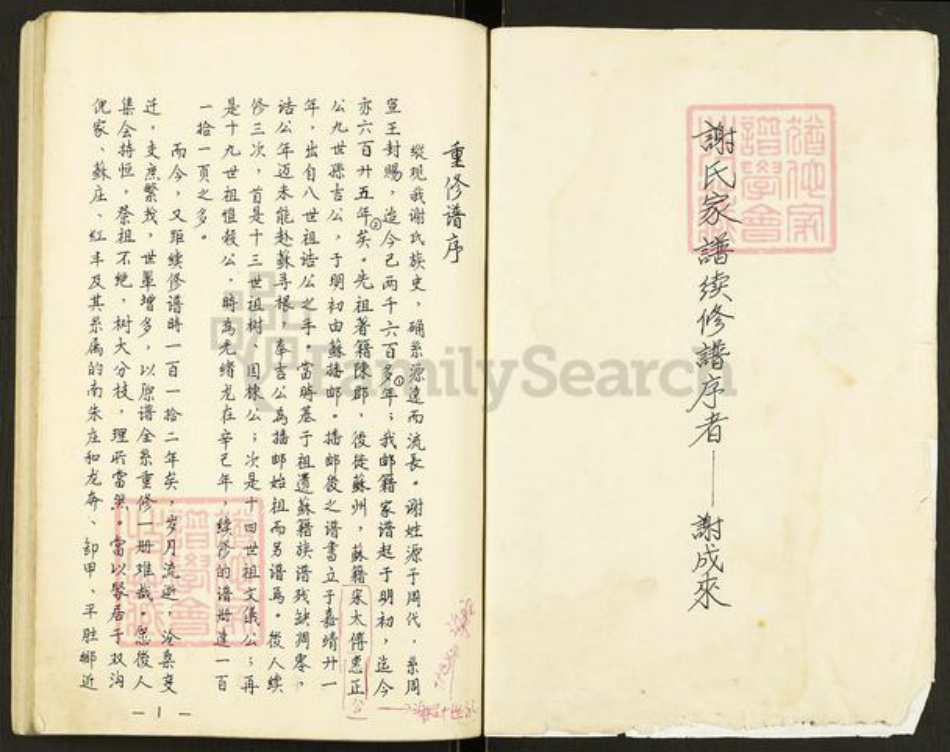 謝氏家譜续修譜序者——謝成來
重修谱序
縱观我谢氏族史，确系源远而流长。谢姓源于周代，系周
宣王封赐，迄今已两千六百多年①；我邮籍家谱起于明初，迄今
亦六百廾五年②矣。先祖著籍陳郡，後徙蘇州，蘇籍宋太傅惠正
公九世孫吉公，于明初由蘇播邮。播邮後之谱書立于嘉靖廾一
年，出自八世祖诰公之手。當時基于祖遗蘇籍族谱残缺凋零，
诰公年迈未能赴蘇寻根，奉吉公為播邮始祖而另谱焉。後人续
修三次，首是十三世祖树、国棟公；次是十四世祖文儀公；再
是十九世祖惟毅公，時為光绪龙在辛巳年，续修的谱册達一百
一拾一頁之多。
而今，又距续修谱時一百一拾二年矣，岁月流逝，沧桑变
迁，支庶繁找，世軰增多，以原谱全系重修一册难哉。忽後人
集会持恒，祭祖不绝，树大分枝，理所當然。當以聚居于双沟
倪家、蘇庄、红丰及其系属的南朱庄和龙奔、卸甲、平胜鄉近
— 1 —
FamilySearch